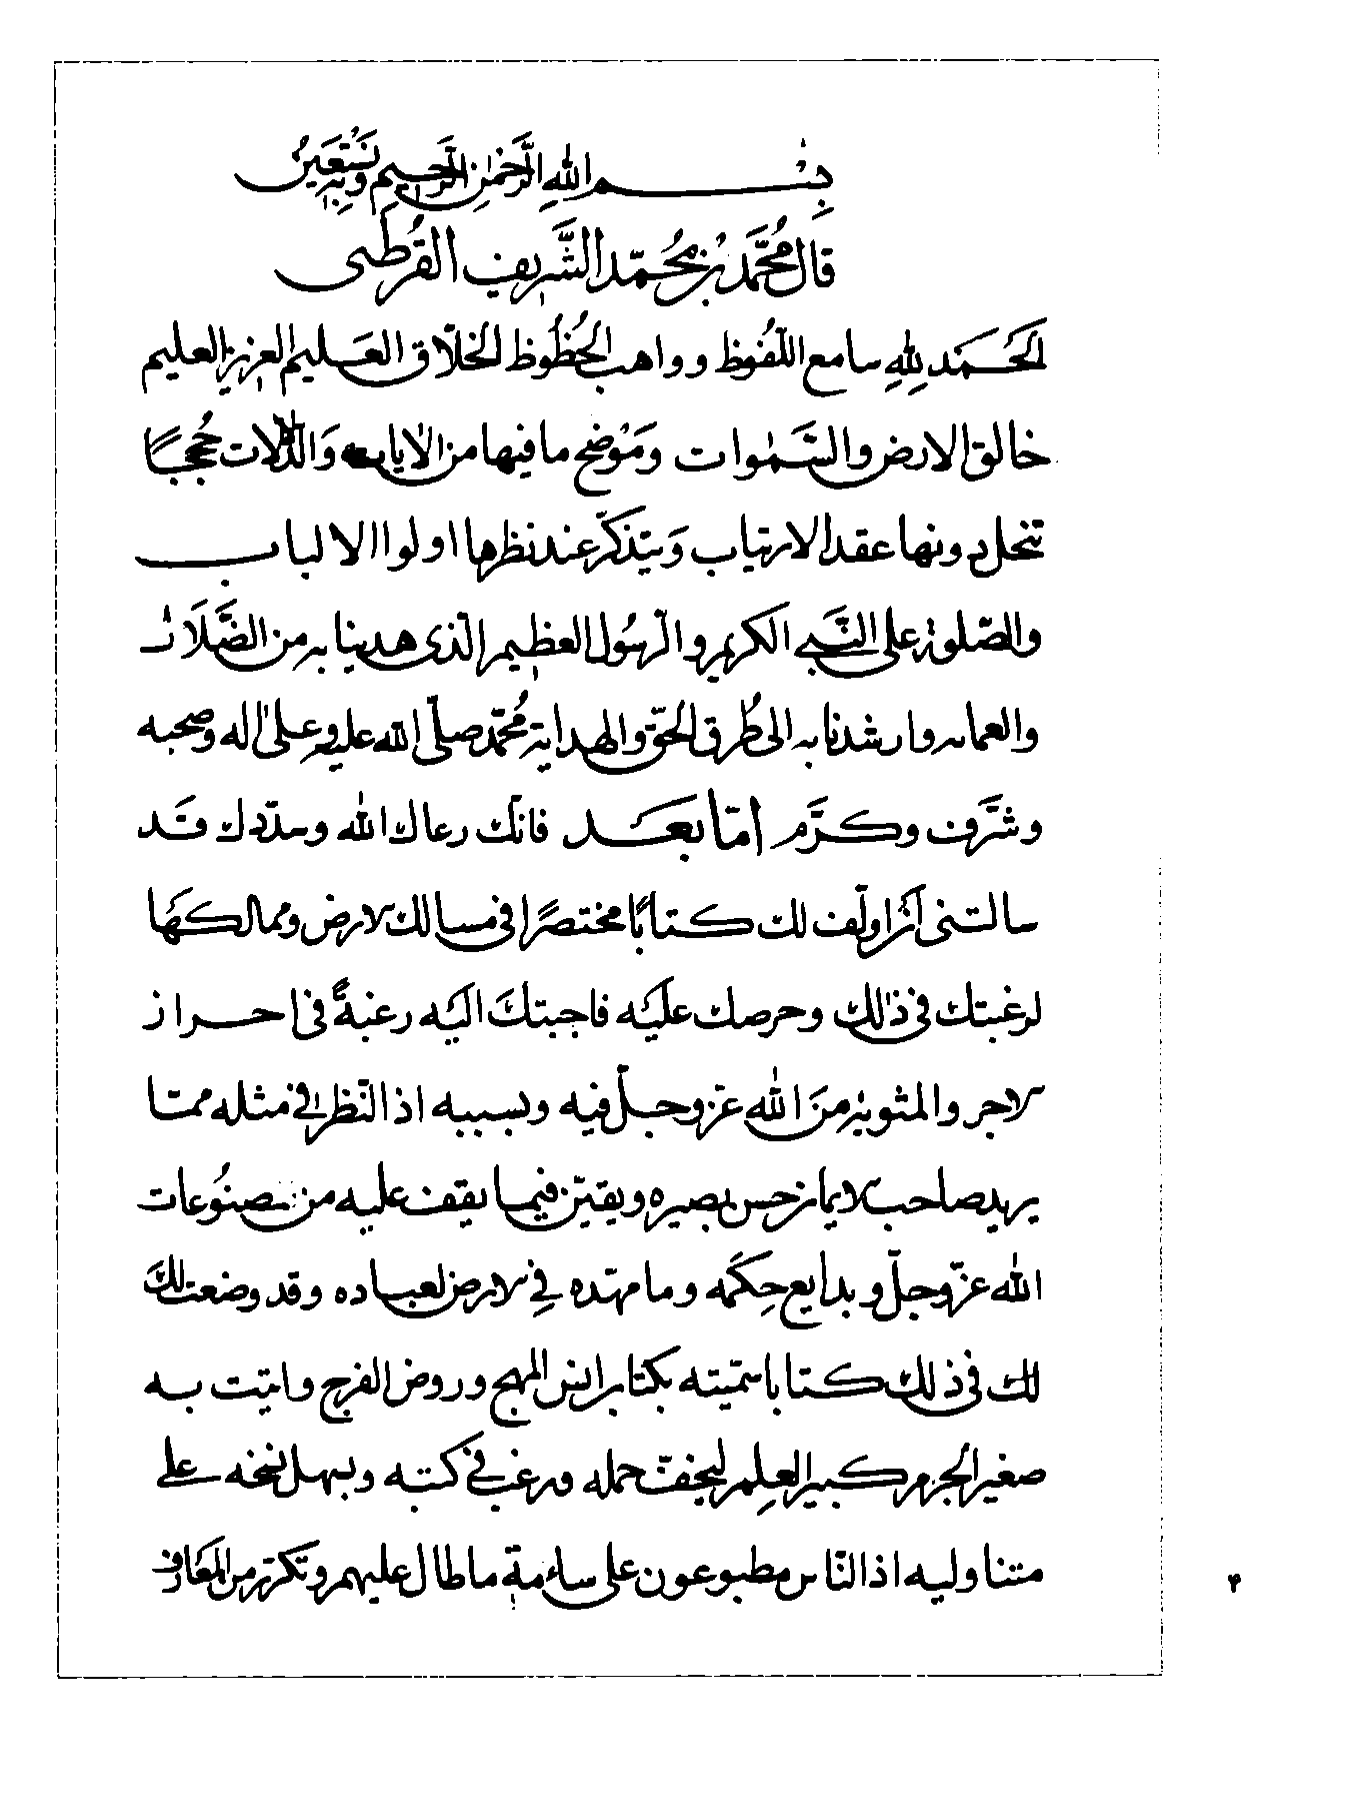 بِسْم اللهِ الرَّحْمٰنِ الرَّحِيمِ وَبِهِ نَسْتَعِينُ
قال مُحَمَّد بن مُحمّد الشَّريف القُرطبى
الحَمَد لِلهِ سامع اللّفُوظ وواهب الحُظُوظ الخلّاق العَليم العزيز العليم
خالق الارض والسَّمٰوات ومَوْضح ما فيها من الايات وَالدّلالات حُججًا
تنحل دونها عقد الارتياب وَيتذكّر عند نظرها اولوا الالباب
والصّلوة على النَّبى الكريم والرّسُول العظيم الّذى هدينا به من الضَّلَالة
والعمايه وارشدنا به الى طُرق الحَقّ والهداية مُحمّد صلّى الله عليه وعلىٰ اله وصحبه
وشرَّف وكرَّم امّا بعَد فانّك رعاك الله وسدّدك قَد
سالتنى أن اولّف لك كتابًا مختصرًا فى مسالك الارض وممالكهَا
لرغبتك فى ذالك وحرصك علَيْه فاجبتكَ اليَه رغبةً فى احراز
الاجر والمثوبة منَ الله عزّ وجلّ فيه وبسببه اذ النّظر فى مثله ممّا
يزيد صاحب الايمان حسن بصيره ويقين فيما يقف عليه من مصنُوعات
الله عزّ وجلّ وبدايع حِكَمه وما مهّده فِى الارض لعباده وقد وضعت لكَ
لك فى ذلك كتابا سمّيته بكتاب انس المهج وروض الفرج واتيت به
صغير الجرم كبير العلِم ليخفّ حمله ويرغب فى كتبه ويسهل نسخه على
متناوليه اذ النّاس مطبوعون على سامة ما طال عليهم وتكرّر من المَعَارف
۴